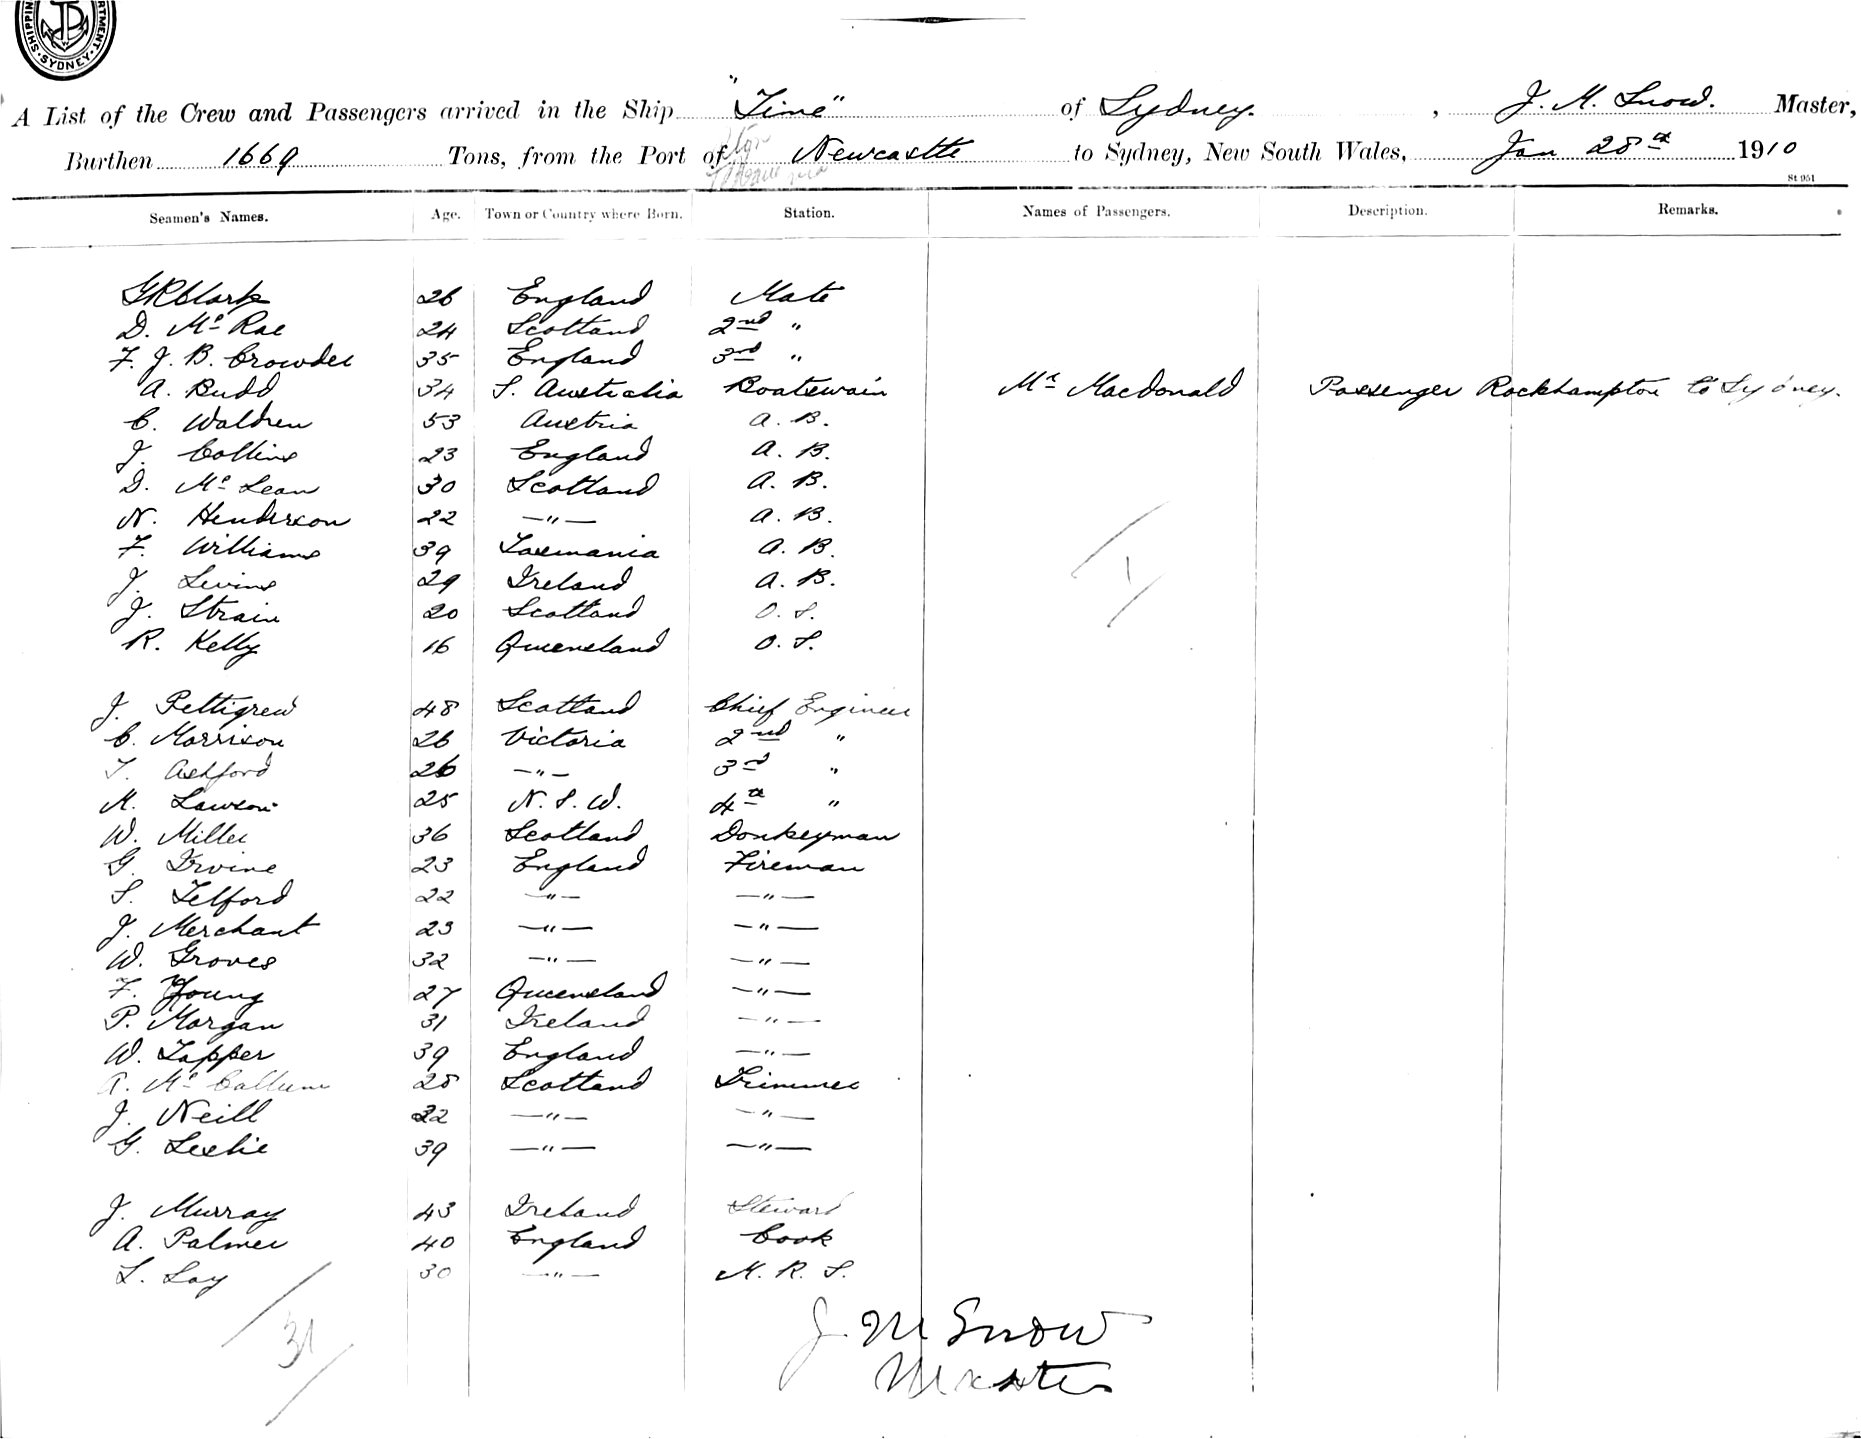 SHIPPING DEPARTMENT. SYDNEY
A List of the Crew and Passengers arrived in the Ship "Time" of Sydney. , J. M. Snow. Master,
Burthen 1669 Tons, from the Port of Newcastle to Sydney, New South Wales, Jan 28th 1910
St 951
Seamen's Names. Age. Town or Country where Born. Station. Names of Passengers. Description. Remarks.
G R Clark 26 England Mate
D. McRae 24 Scotland 2nd "
F. J. B. Crowder 35 England 3rd "
A. Budd 34 S. Australia Boatswain Mr Macdonald Passenger Rockhampton to Sydney.
C. Waldren 53 Austria A. B.
J. Collins 23 England A. B.
D. McLean 30 Scotland A. B.
N. Henderson 22 —"— A. B.
F. Williams 39 Tasmania A. B.
J. Levins 29 Ireland A. B.
J. Strain 20 Scotland O. S.
R. Kelly 16 Queensland O. S.
J. Pettigrew 48 Scotland Chief Engineer
C. Morrison 26 Victoria 2nd "
T. Ashford 26 —"— 3rd "
M. Lawson 25 N. S. W. 4th "
W. Miller 36 Scotland Donkeyman
G. Irvine 23 England Fireman
S. Telford 22 —"— —"—
J. Merchant 23 —"— —"—
W. Groves 32 —"— —"—
F. Young 27 Queensland —"—
P. Morgan 31 Ireland —"—
W. Tapper 39 England —"—
A. McCallum 28 Scotland Trimmer
J. Neill 22 —"— —"—
G. Leslie 39 —"— —"—
J. Murray 43 Ireland Steward
A. Palmer 40 England Cook
L. Lay 30 —"— M. R. S.
/ 31 /
J. M Snow
Master
/ 1 /